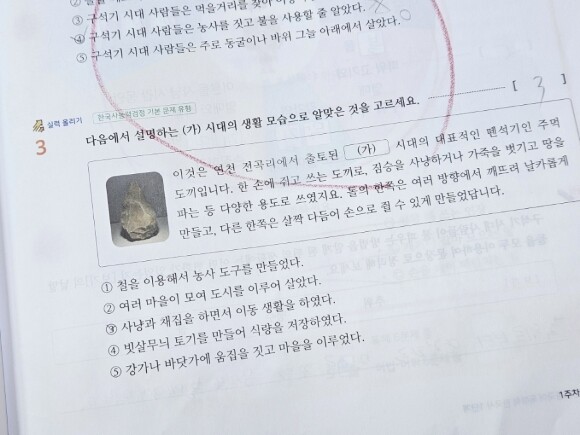 ③ 구석기 시대 사람들은 먹을거리를 찾아
④ 구석기 시대 사람들은 농사를 짓고 불을 사용할 줄 알았다.
⑤ 구석기 시대 사람들은 주로 동굴이나 바위 그늘 아래에서 살았다.
실력 올리기
기본 문제 유형
3 다음에서 설명하는 (가) 시대의 생활 모습으로 알맞은 것을 고르세요. [ 3 ]
이것은 연천 전곡리에서 출토된 (가) 시대의 대표적인 뗀석기인 주먹
도끼입니다. 한 손에 쥐고 쓰는 도끼로, 짐승을 사냥하거나 가죽을 벗기고 땅을
파는 등 다양한 용도로 쓰였지요. 돌의 한쪽은 여러 방향에서 깨뜨려 날카롭게
만들고, 다른 한쪽은 살짝 다듬어 손으로 쥘 수 있게 만들었답니다.
① 철을 이용해서 농사 도구를 만들었다.
② 여러 마을이 모여 도시를 이루어 살았다.
③ 사냥과 채집을 하면서 이동 생활을 하였다.
④ 빗살무늬 토기를 만들어 식량을 저장하였다.
⑤ 강가나 바닷가에 움집을 짓고 마을을 이루었다.
1주차